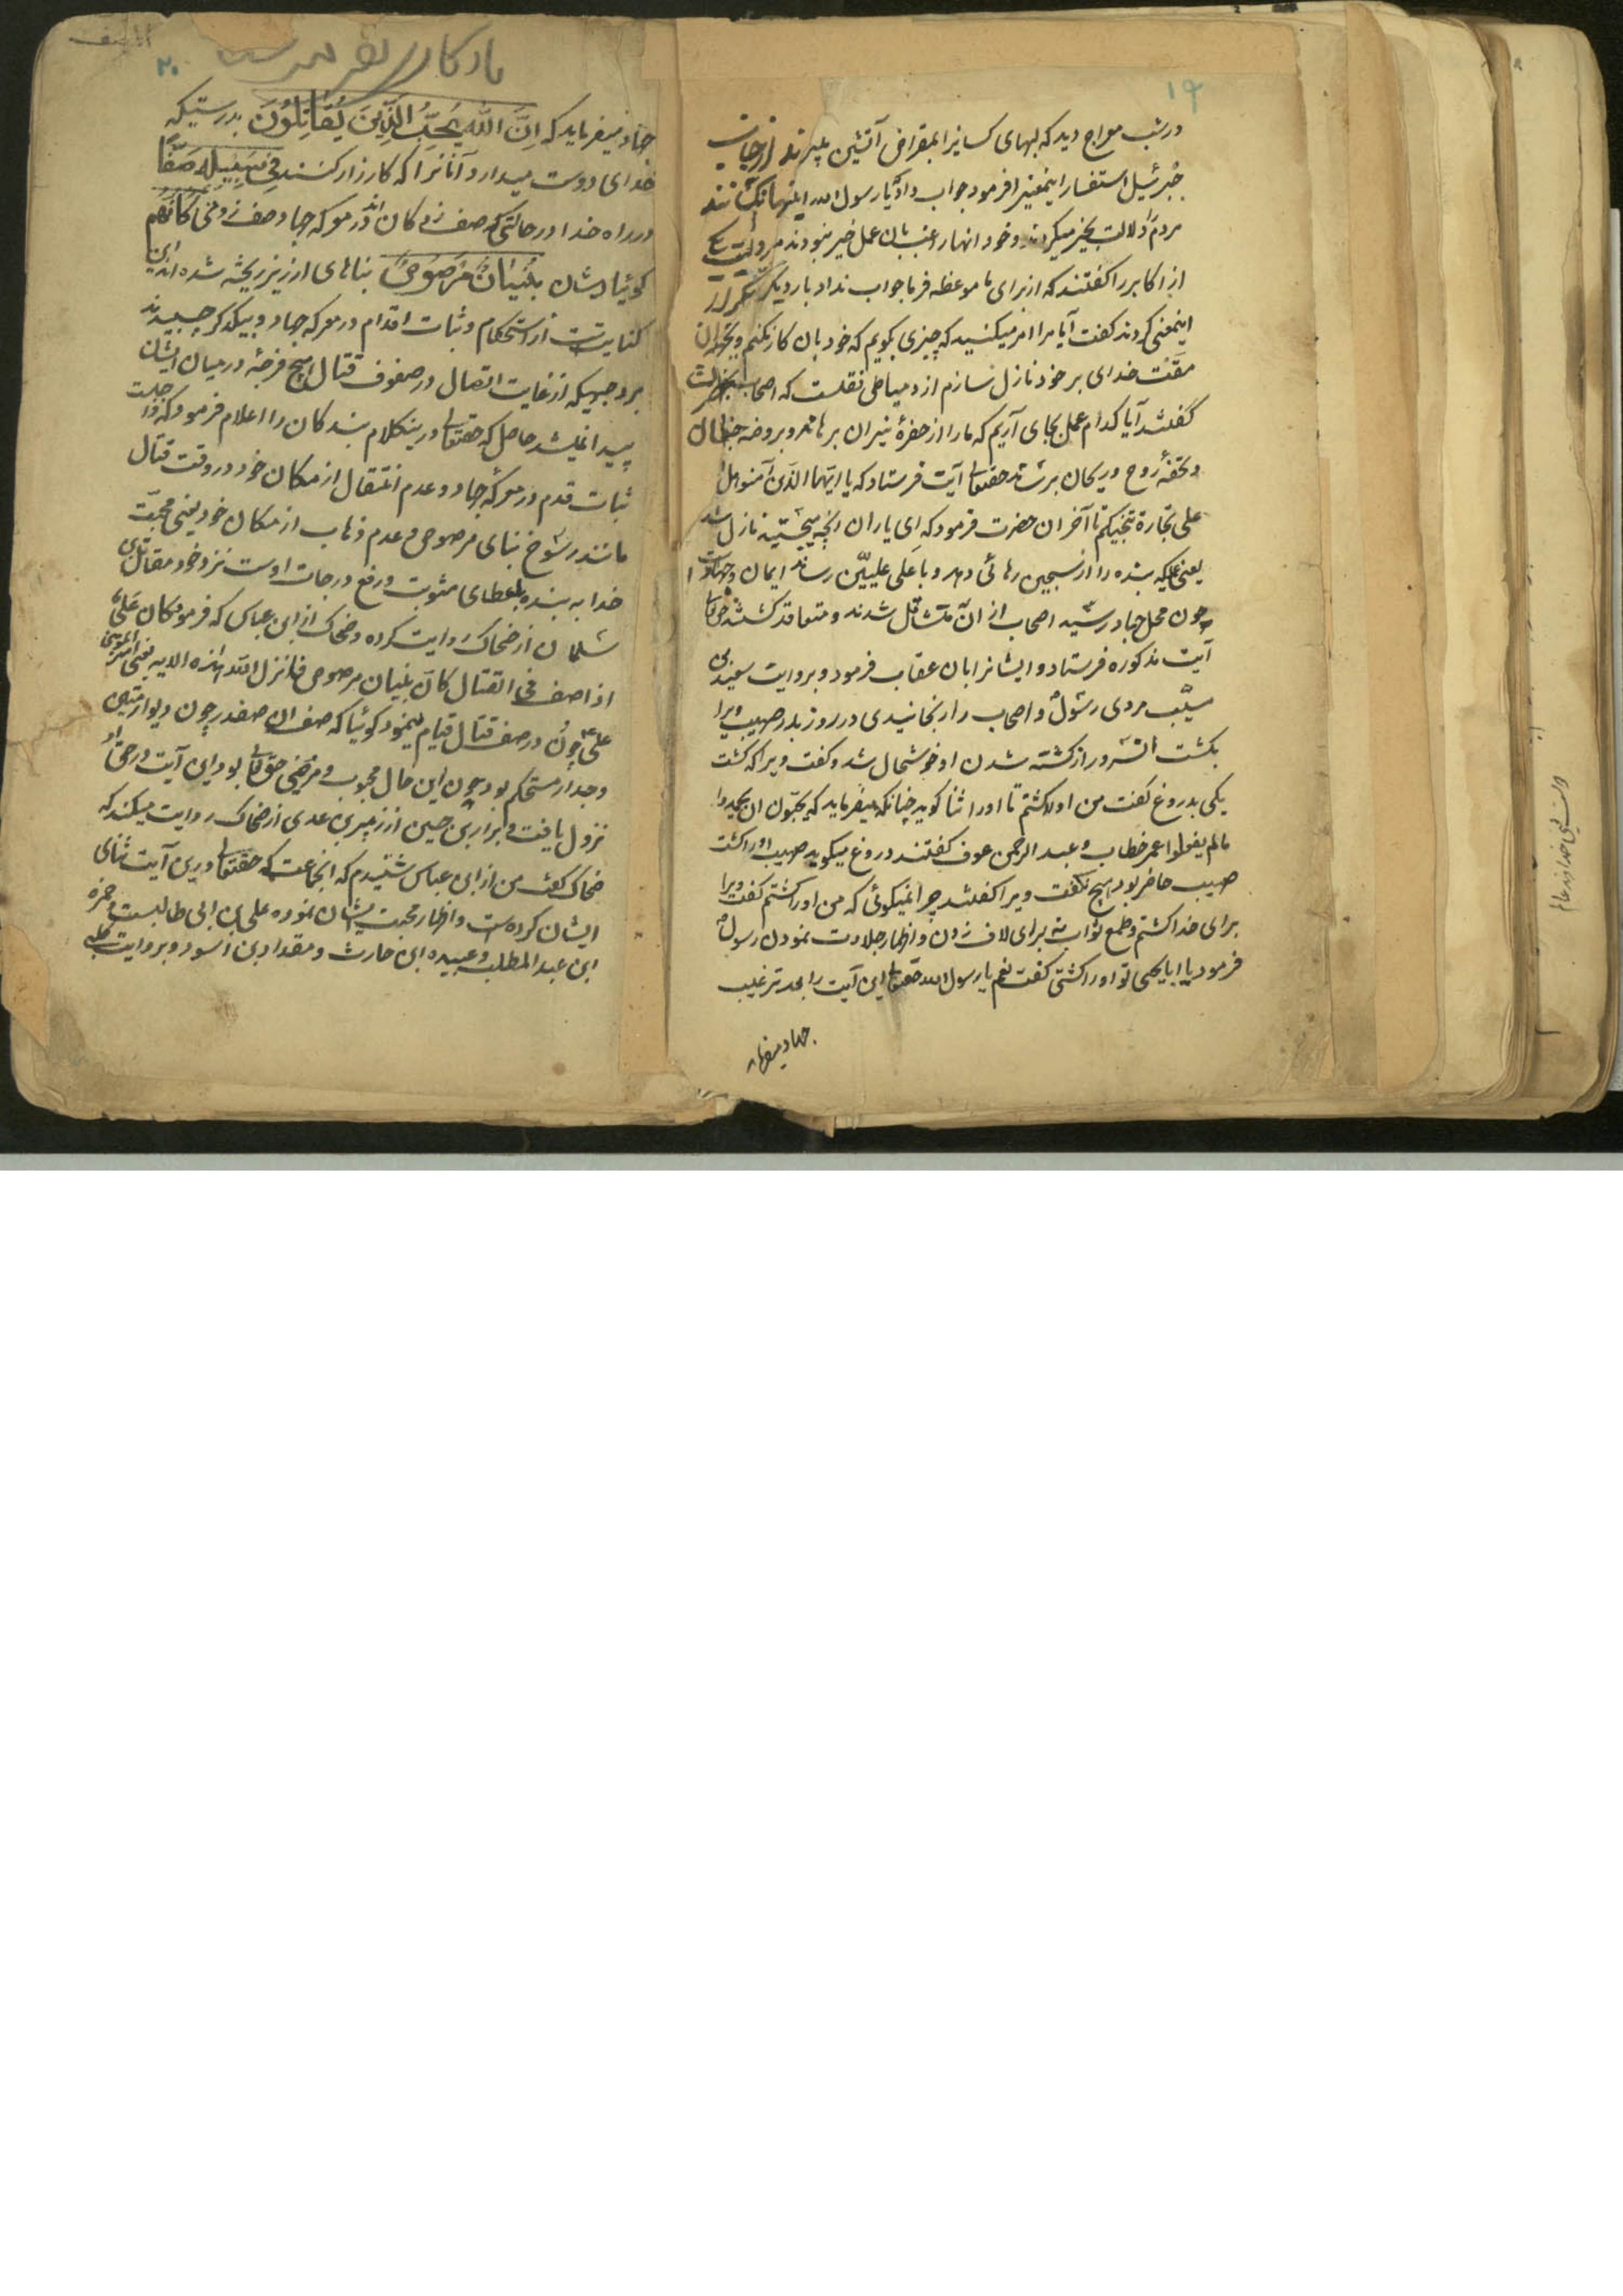 ۱۹
در شب معراج دید که لبهای کسانیرا بمقراض آتشین میبریدند از جناب
جبرئیل استفسار اینمعنیرا فرمود جواب داد که یا رسول الله اینها آنکسانند
مردم را دلالت بخیر میکردند و خود آنها راغب بآن عمل خیر نبودند مرویست یکی
از اکابر را گفتند که از برای ما موعظه فرما جواب نداد بار دیگر تکرار
اینمعنی کردند گفت آیا مرا امر میکنید که چیزی بگویم که خود بآن کار نکنم و بجهة آن
مقت خدای بر خود نازل سازم از دمیاطی نقلست که اصحاب بحضرت
گفتند آیا کدام عمل بجای آریم که ما را از حفرهٔ نیران برهاند و بروضه جنان
و تحفهٔ روح و ریحان برساند حقتعالی آیت فرستاد که یا ایها الذین آمنوا هل
علی تجارة تنجیکم تا آخر ان حضرت فرمود که ای یاران آنچه میجستید نازل شد
یعنی عملیکه بنده را از سجین رهائی دهد و باعلی علیین رساند ایمان و جهادست
چون محل جهاد رسید اصحاب از ان متثاقل شدند و متقاعد گشتند حق تعالی
آیت مذکوره فرستاد و ایشانرا بان عقاب فرمود و بروایت سعید بن
مسیب مردی رسول و اصحاب را رنجانیدی در روز بدر صهیب ویرا
بکشت آنسرور از کشته شدن او خوشحال شد و گفت ویرا که کشت
یکی بدروغ گفت من او را کشتم تا او را ثنا گوید چنانکه میفرماید که یحبون ان یحمدوا
بما لم یفعلوا عمر خطاب و عبد الرحمن عوف گفتند دروغ میگوید صهیب او را کشت
صهیب حاضر بود هیچ نگفت ویرا گفتند چرا نمیگوئی که من او را کشتم گفت ویرا
برای خدا کشتم و طمع ثواب نه برای لاف زدن و اظهار جلادت نمودن رسول
فرمود یا ابا یحیی تو او را کشتی گفت نعم یا رسول الله حقتعالی این آیت را بعد ترغیب
جهاد میفرماید
۲۰
جهاد میفرماید که اِنَّ اللهَ یُحِبُّ الَّذِینَ یُقَاتِلُونَ بدرستیکه
خدای دوست میدارد آنانرا که کارزار کنند فِی سَبِیلِهِ صَفًّا
در راه خدا در حالتی که صف زده گان اند در معرکه جهاد وصف زدنی کَاَنَّهُم
گوئیا ایشان بُنْیَانٌ مَرْصُوصٌ بناهای ارزیز ریخته شده اند این
کنایتست از استحکام و ثبات اقدام در معرکه جهاد و بیکدیگر چسبیدند
بر وجهیکه از غایت اتصال در صفوف قتال هیچ فرجهٔ در میان ایشان
پیدا نمیشد حاصل که حقتعالی درینکلام بندگان را اعلام فرمود که واجبست
ثبات قدم در معرکه جهاد و عدم انتقال از مکان خود در وقت قتال
مانند رسوخ بنای مرصوص و عدم ذهاب از مکان خود یعنی محبت
خدا به بنده بعطای مثوبت و رفع درجات اوست نزد خود مقاتل بن
سلمان از ضحاک روایت کرده و ضحاک از ابن عباس که فرمود کان عَلیٌّ
اذا صف فی القتال کان بنیان مرصوص فانزل الله هذه الایه یعنی امیر المومنین
علی ع چون در صف قتال قیام مینمود گوئیا که صف ان صفدر چون دیوار متین
و جدار مستحکم بود چون این حال محبوب و مرضی حق تعالی بود این آیت در حق او
نزول یافت و ابرار بن حسین از زبیر بن عدی از ضحاک روایت میکند که
ضحاک گفت من از ابن عباس شنیدم که انجماعت که حقتعالی درین آیت ثنای
ایشان کرده است و اظهار محبت ایشان نموده علی بن ابی طالبست و حمزه
ابن عبد المطلب و عبیده ابن حارث و مقداد بن اسود و بروایت کلبی